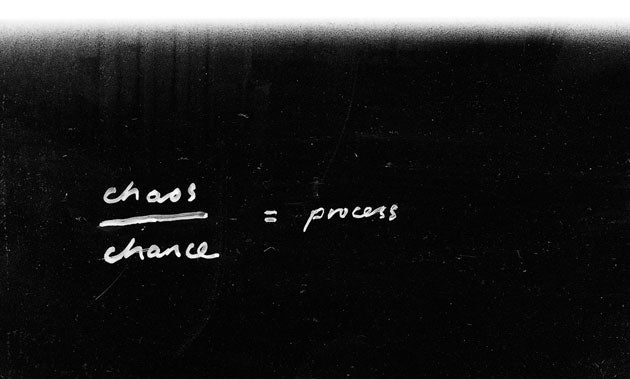 chaos
chance
= process